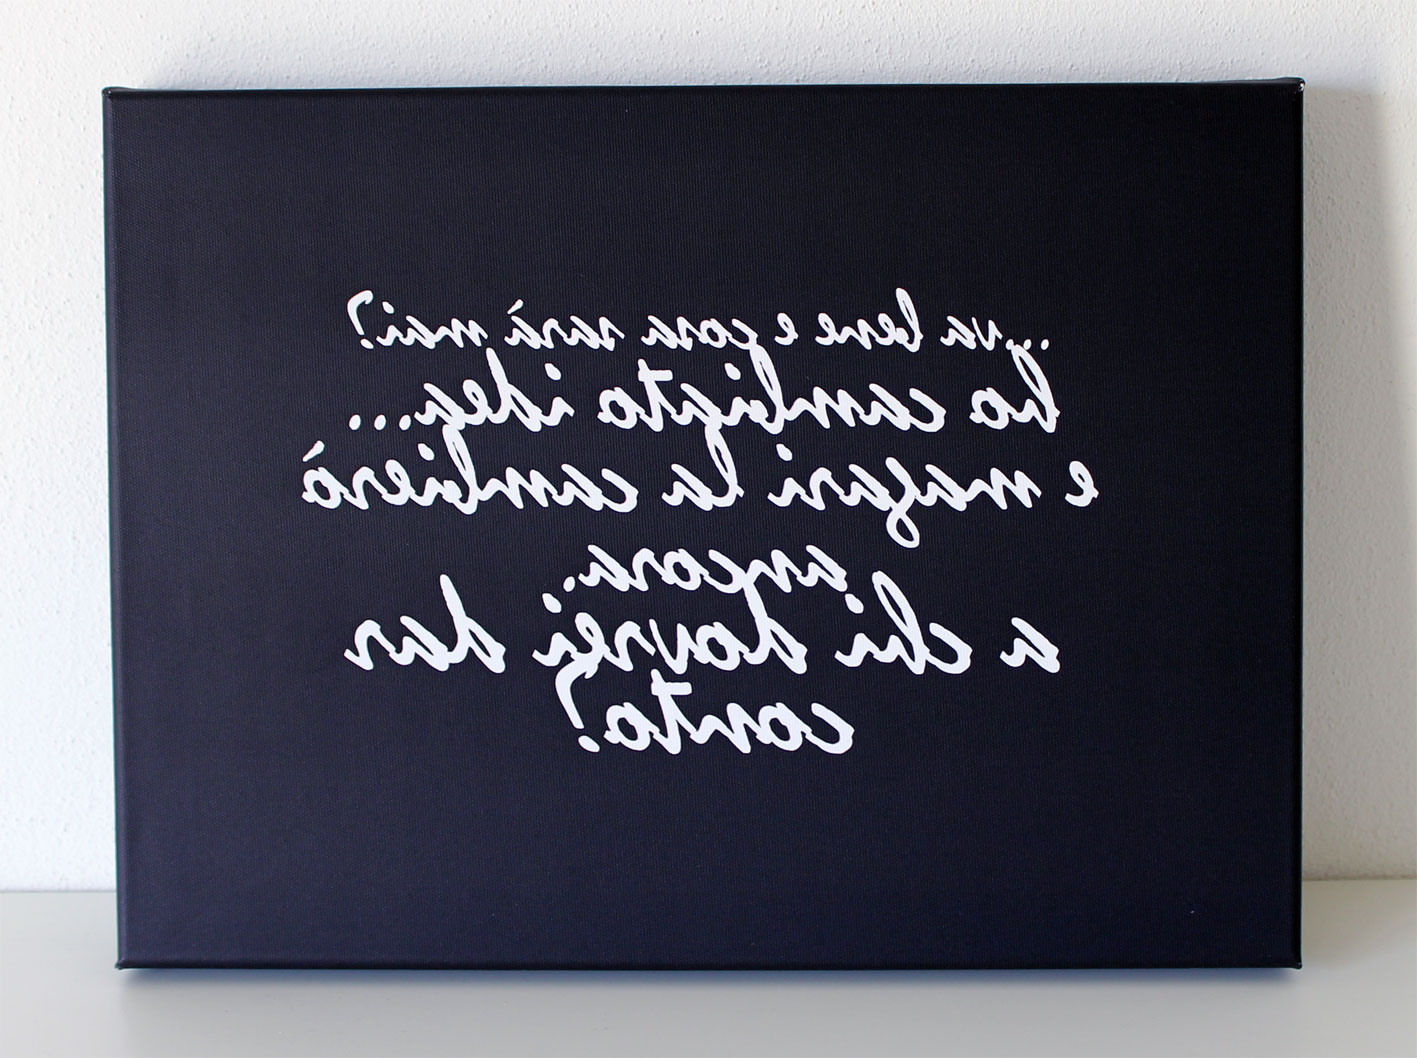 ...va bene e cosa sarà mai?
ho cambiato idea...
e magari la cambierò
ancora.
a chi dovrei dar
conto?